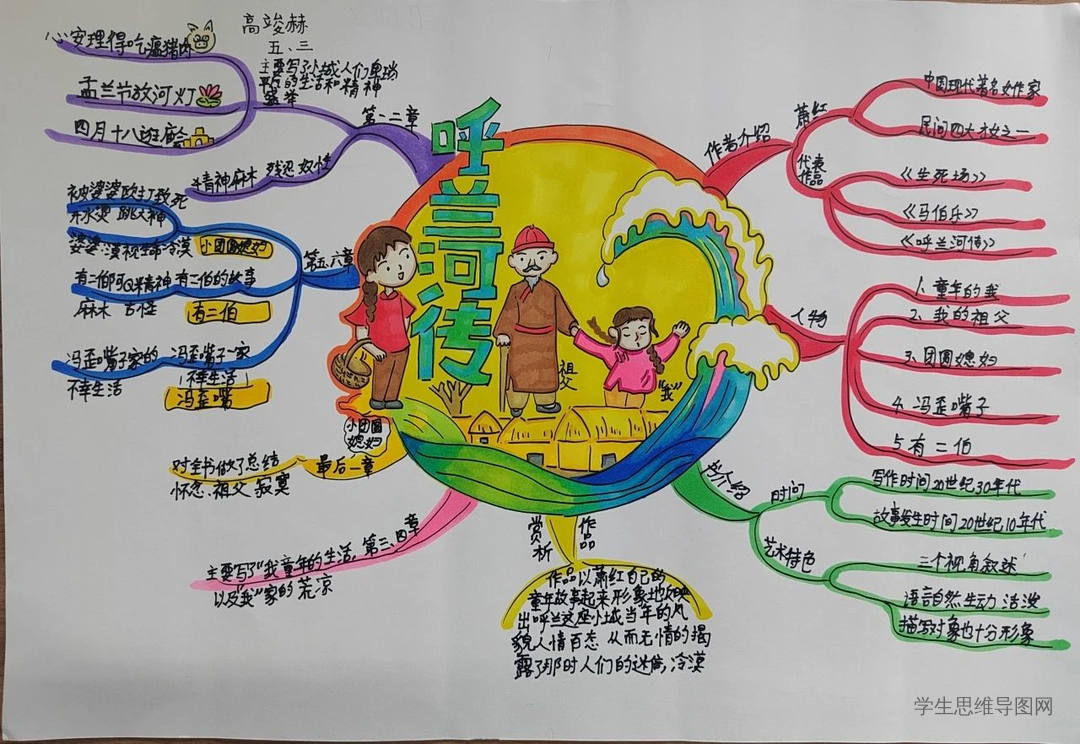 呼兰河传
高竣赫
五、三
心安理得吃瘟猪肉
盂兰节放河灯
四月十八逛庙会
主要写了小城人们卑琐
平凡的生活和精神
盛举
第一二章
精神麻木 残忍 奴性
第五、六章
被婆婆殴打致死
开水烫 跳大神
小团圆媳妇
婆婆:漠视生命 冷漠
有二伯阿Q半精神
有二伯的故事
麻木 古怪
有二伯
冯歪嘴子家的
不幸生活
冯歪嘴子一家
不幸生活
冯歪嘴
最后一章
对全书做了总结
怀念.祖父 寂寞
第三、四章
主要写了"我童年的生活,
以及"我"家的 荒凉
小团圆
媳妇
祖父
"我"
赏析
作品
作品以萧红自己的
童年故事起来形象地反映
出呼兰这座小城当年的风
貌人情百态 从而无情的揭
露了那时人们的迷信,冷漠
作者介绍
萧红
中国现代著名女作家
民间四大才女之一
代表
作品
《生死场》
《马伯乐》
《呼兰河传》
人物
1、童年的我
2、我的祖父
3、团圆媳妇
4、冯歪嘴子
5、有二伯
书介绍
时间
写作时间20世纪30年代
故事发生时间20世纪10年代
艺术特色
三个视角叙述
语言自然生动 活泼
描写对象也十分形象
学生思维导图网